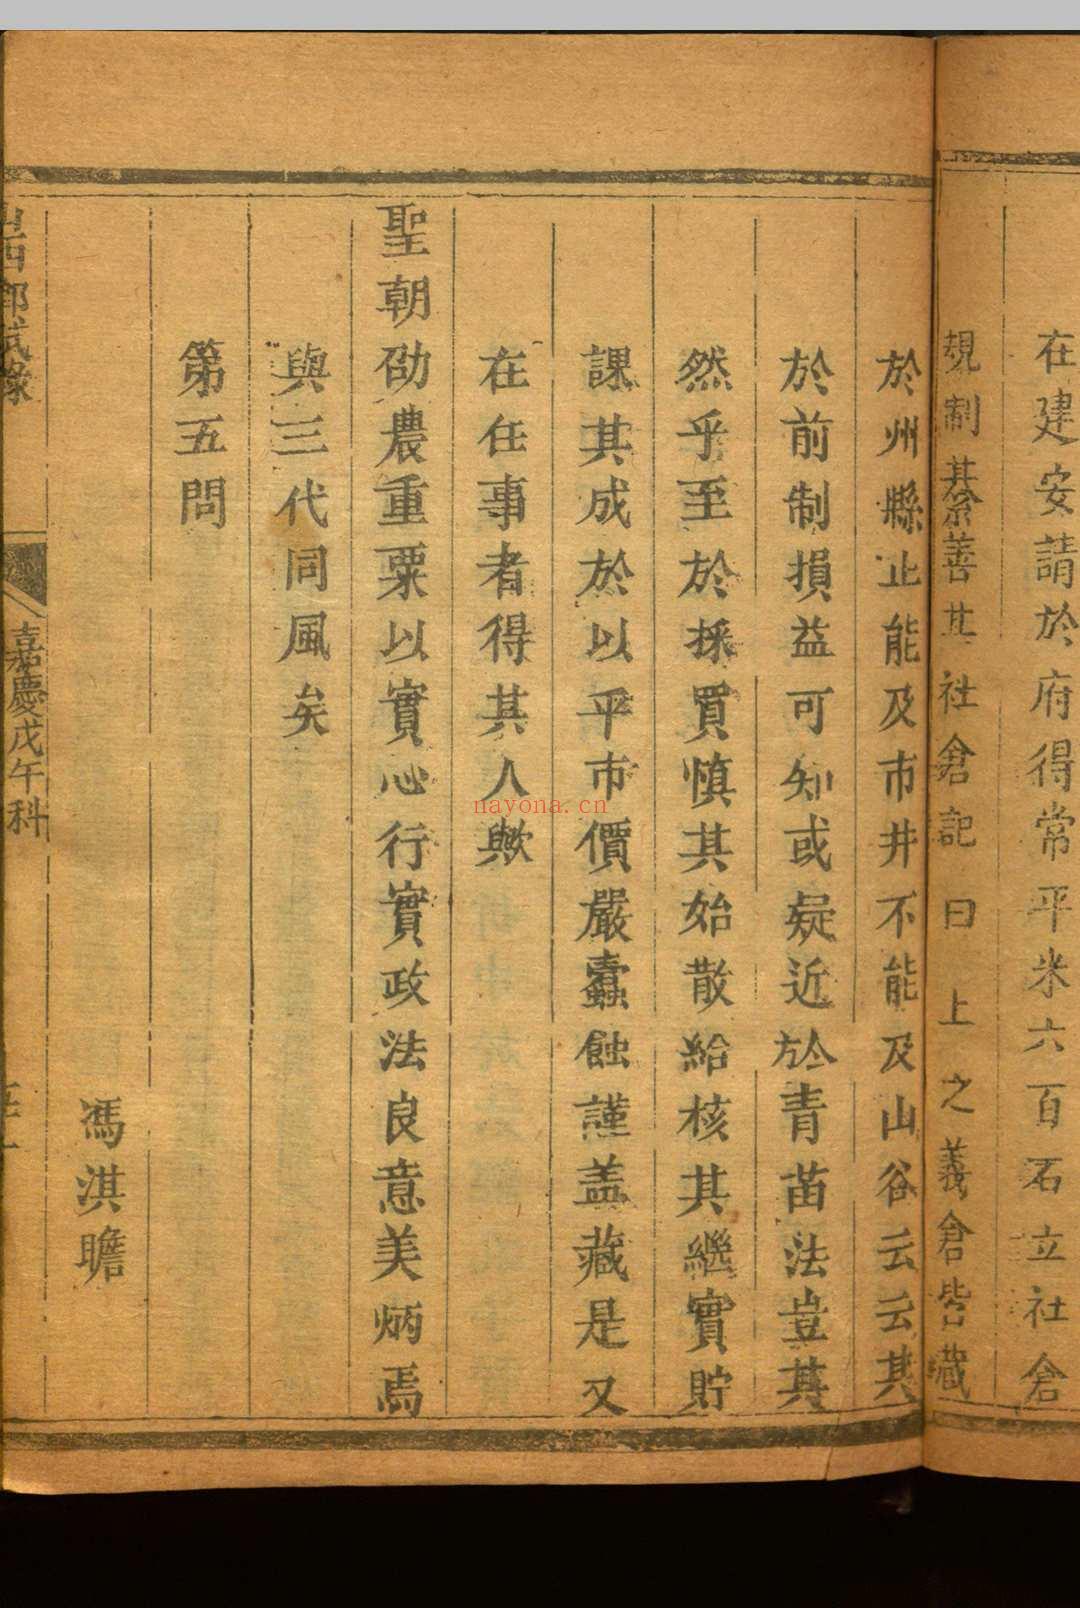 在建安請於府得常平米六百石立社倉
規制綦善其社倉記曰上之義倉皆藏
於州縣止能及市井不能及山谷云云其
於前制損益可知或疑近於青苗法豈其
然乎至於採買慎其始散給核其繼實貯
課其成於以平市價嚴蠹蝕謹盖藏是又
在任事者得其人歟
聖朝劭農重粟以實心行實政法良意美炳焉
與三代同風矣
第五問
馮淇瞻
鄉試錄
嘉慶戊午科
nayona.cn